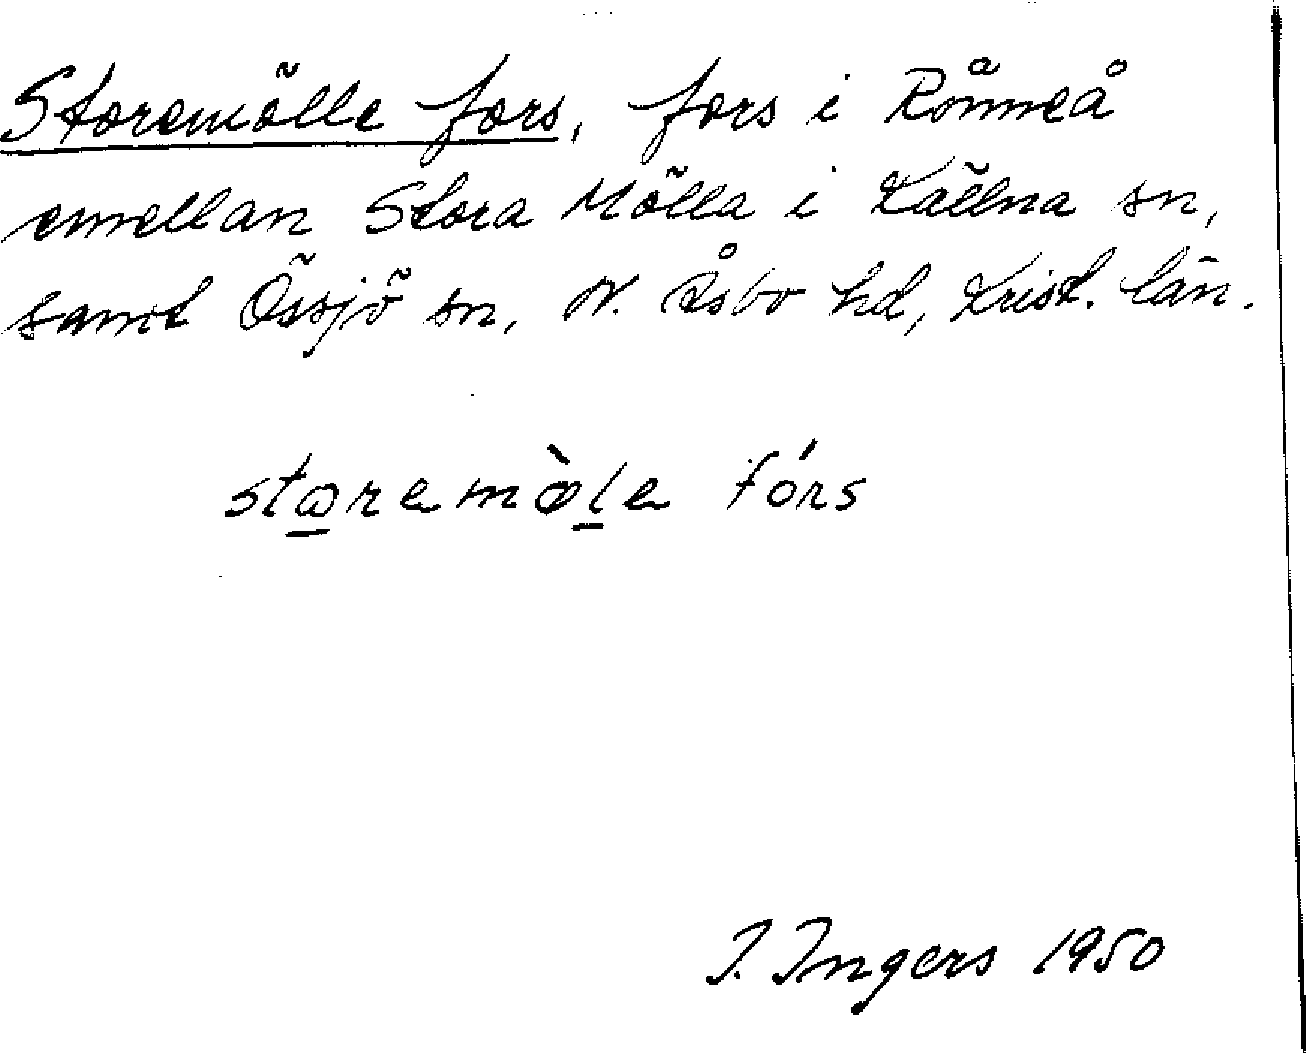 Storemölle fors, fors i Rönneå
emellan Stora Mölla i Källna sn,
samt Össjö sn, N. Åsbo hd, Krist. län.
storemø̀le fórs
I. Ingers 1950